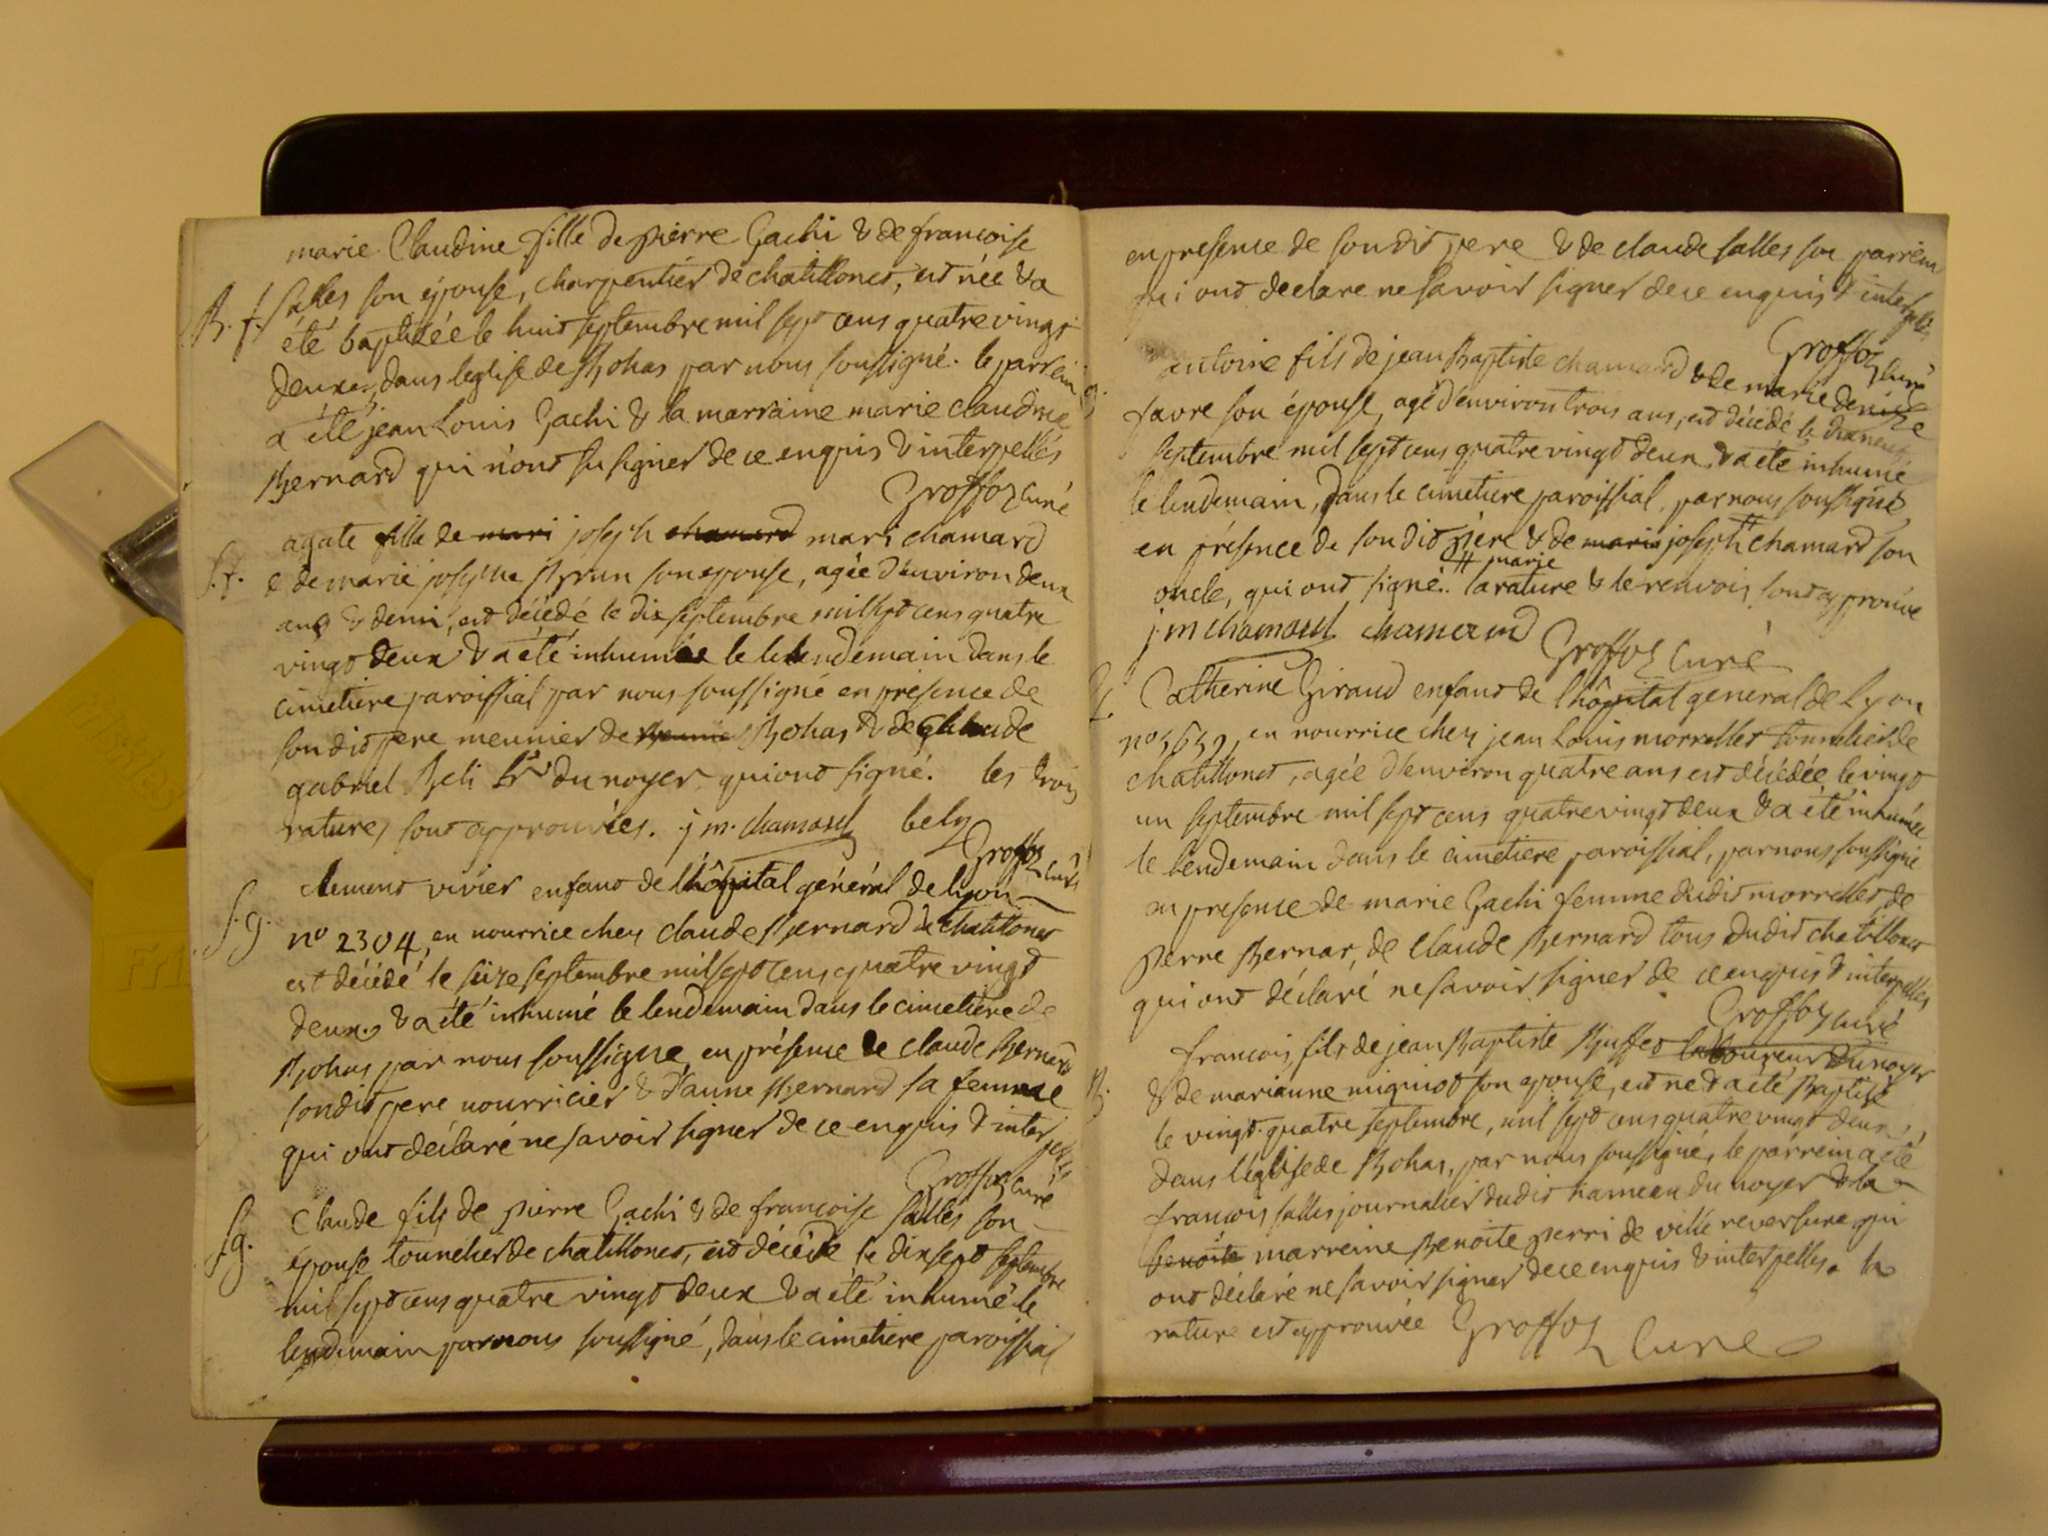 marie Claudine fille de pierre Gachi & de francoise
B. f. salles son épouse, charpentier de chatillonet, est née & a
été baptisée le huit septembre mil sept cens quatre vingt
deux, dans leglise de Rohas par nous soussigné. le parrein
a été jean Louis Gachi & la marraine marie claudine
Bernard qui n'ont su signer de ce enquis & interpellés
Groffoz curé
agate fille de mari joseph chamard mari chamard
S. f. & de marie josephe Brun son epouse, agée d'environ deux
ans & demi, est décédé le dix septembre mil sept cens quatre
vingt deux & a été inhumée le lendemain dans le
cimetiere paroissial par nous soussigné en présence de
sondit pere meunier de Rohas & de claude
gabriel Beli Br du noyer qui ont signé. les trois
ratures sont approuvées. j m. chamard bely
Groffoz curé
clement vivier enfant de l'hôpital général de lyon
S. g. no 2304, en nourrice chez claude Bernard de chatillonet
est décédé le seize septembre mil sept cens quatre vingt
deux & a été inhumé le lendemain dans le cimetiere de
Rohas par nous soussigné en présence de claude Bernard
sondit pere nourricier & d'anne Bernard sa femme
qui ont déclaré ne savoir signer de ce enquis & interpellés
Groffoz curé
Claude fils de pierre Gachi & de francoise salles son
S. g. épouse tounelier de chatillonet, est décédé le dix sept septembre
mil sept cens quatre vingt deux & a été inhumé le
lendemain par nous soussigné, dans le cimetiere paroissial
en presence de sondit pere & de claude salles son parrein
qui ont declare ne savoir signer de ce enquis & interpellés
Groffoz curé
antoine fils de jean Baptiste chamard & de marie denise
favre son épouse, agé d'environ trois ans, est décédé le dixneuf
septembre mil sept cens quatre vingt deux & a été inhumé
le lendemain, dans le cimetiere paroissial, par nous soussigné
en présence de sondit père & de marie joseph # chamard son
# marie
oncle, qui ont signé. la rature & le renvois sont approuvé
j m chamard chamard
Groffoz curé
Catherine Giraud enfant de l'hôpital general de Lyon
no 5632, en nourrice chez jean Louis morrellet tounelier de
chatillonet, agée d'environ quatre ans est décédée le vingt
un septembre mil sept cens quatre vingt deux & a été inhumée
le lendemain dans le cimetiere paroissial, par nous soussigné
en presence de marie Gachi femme dudit morrellet, de
pierre Bernar, de Claude Bernard tous dudit chatillonet
qui ont déclaré ne savoir signer de ce enquis & interpellés
Groffoz curé
francois, fils de jean Baptiste Buffet laboureur du noyer
B. & de marianne mignot son epouse, est né & a été Baptisé
le vingt quatre septembre, mil sept cens quatre vingt deux,
dans l'église de Rohas, par nous soussigné, le parrein a été
francois salles journalier dudit hameau du noyer & la
benoite marreine Benoite perri de ville reversure qui
ont déclaré ne savoir signer de ce enquis & interpelles. la
rature est approuvée Groffoz curé